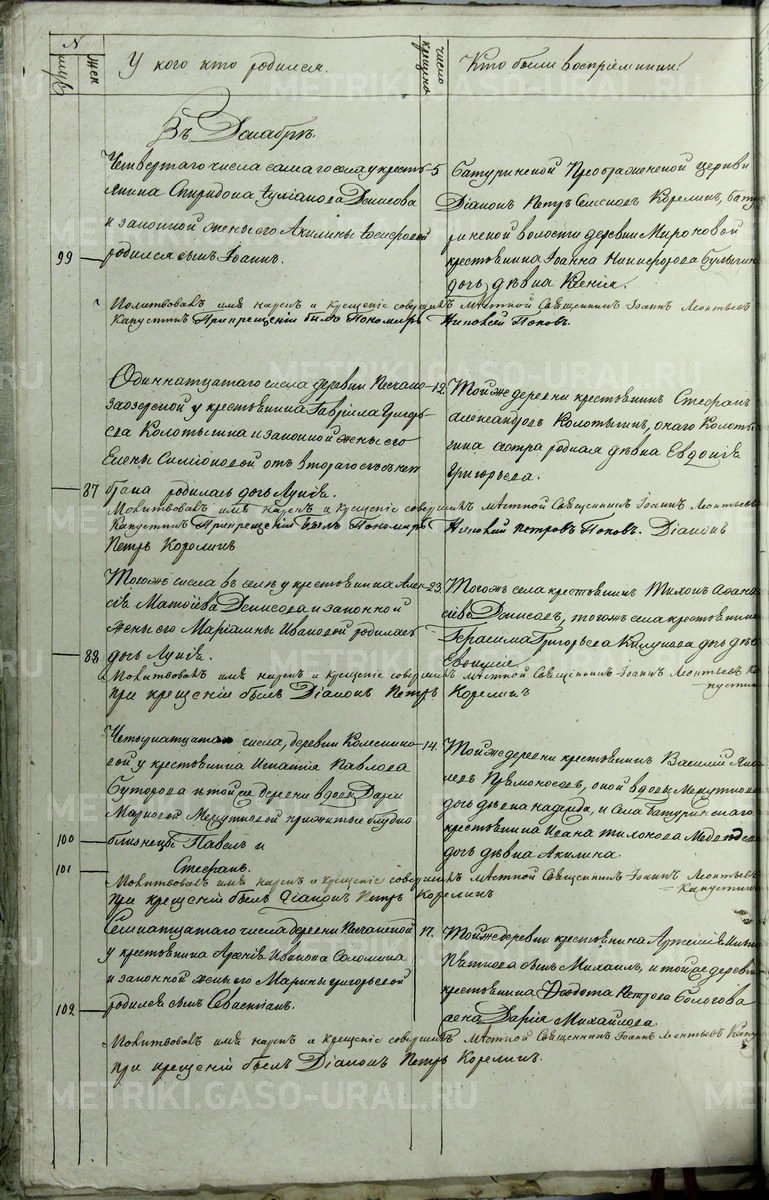 N
муж
жен
У кого кто родился.
число крещенія
Кто были воспріемники.
Въ Декабрѣ.
Четвертаго числа сама го села у крестъ-
янина Спиридона Денисова
и законной жены его Акилины
99 родился сынъ Іоаннъ.
5
Батуринской Преображенской церкви
Діаконъ Петръ Корелинъ, Бату-
ринской волости деревни Мироновой
крестьянина Іоанна Никифорова
дочь дѣвка Ксенія.
Молитвовалъ имя нарекъ и крещеніе совершилъ мѣстной Священникъ Іоаннъ Леонтьевъ
Капустинъ При крещеніи былъ Пономарь Поповъ.
Одиннатцатаго числа деревни Песчано-
заозерской у крестьянина Гаврила Григорь-
ева Колотыгина и законной жены его
Елены Симіоновой отъ втораго
87 брака родилась дочь Лукія.
12
Той же деревни крестьянинъ Стефанъ
Александровъ Колотыгинъ, онаго Колоты-
гина сестра родная дѣвка Евдокія
Григорьева.
Молитвовалъ имя нарекъ и крещеніе совершилъ мѣстной Священникъ Іоаннъ Леонтьевъ
Капустинъ При крещеніи былъ Пономарь Петровъ Поповъ. Діаконъ
Петръ Корелинъ
Того же числа въ селѣ у крестьянина Алек-
сія Матѳіева Денисова и законной
жены его Маріамны Ивановой родилась
88 дочь Лукія.
23
Тогожъ села крестьянинъ Тихонъ Афана-
сіевъ Денисовъ, тогожъ села крестьянина
Герасима Григорьева дочь дѣвка
Молитвовалъ имя нарекъ и крещеніе совершилъ мѣстной Священникъ Іоаннъ Леонтьевъ Ка-
пустинъ
при крещеніи былъ Діаконъ Петръ Корелинъ
Четырнатцатаго числа, деревни
у крестьянина Игнатія Павлова
Буторова и той же деревни вдовы Даріи
Марковой прижитые блудно
100 близнецы Павелъ и
101 Стефанъ.
14
Той же деревни крестьянинъ Василій
оной вдовы
дочь дѣвка Надежда, и села Батуринскаго
крестьянина Ивана Тихонова
дочь дѣвка Акилина.
Молитвовалъ имя нарекъ и крещеніе совершилъ мѣстной Священникъ Іоаннъ Леонтьевъ
Капустинъ
при крещеніи былъ Діаконъ Петръ Корелинъ
Семнатцатаго числа деревни
у крестьянина Иванова Соломина
и законной жены его Марины Григорьевой
102 родился сынъ Севастіанъ.
17
Той же деревни крестьянина Артемія
сынъ Михаилъ, и той же деревни
крестьянина Ѳеодота Петрова
жена Дарія Михайлова.
Молитвовалъ имя нарекъ и крещеніе совершилъ мѣстной Священникъ Іоаннъ Леонтьевъ Капу
при крещеніи былъ Діаконъ Петръ Корелинъ.
METRIKI.GASO-URAL.RU